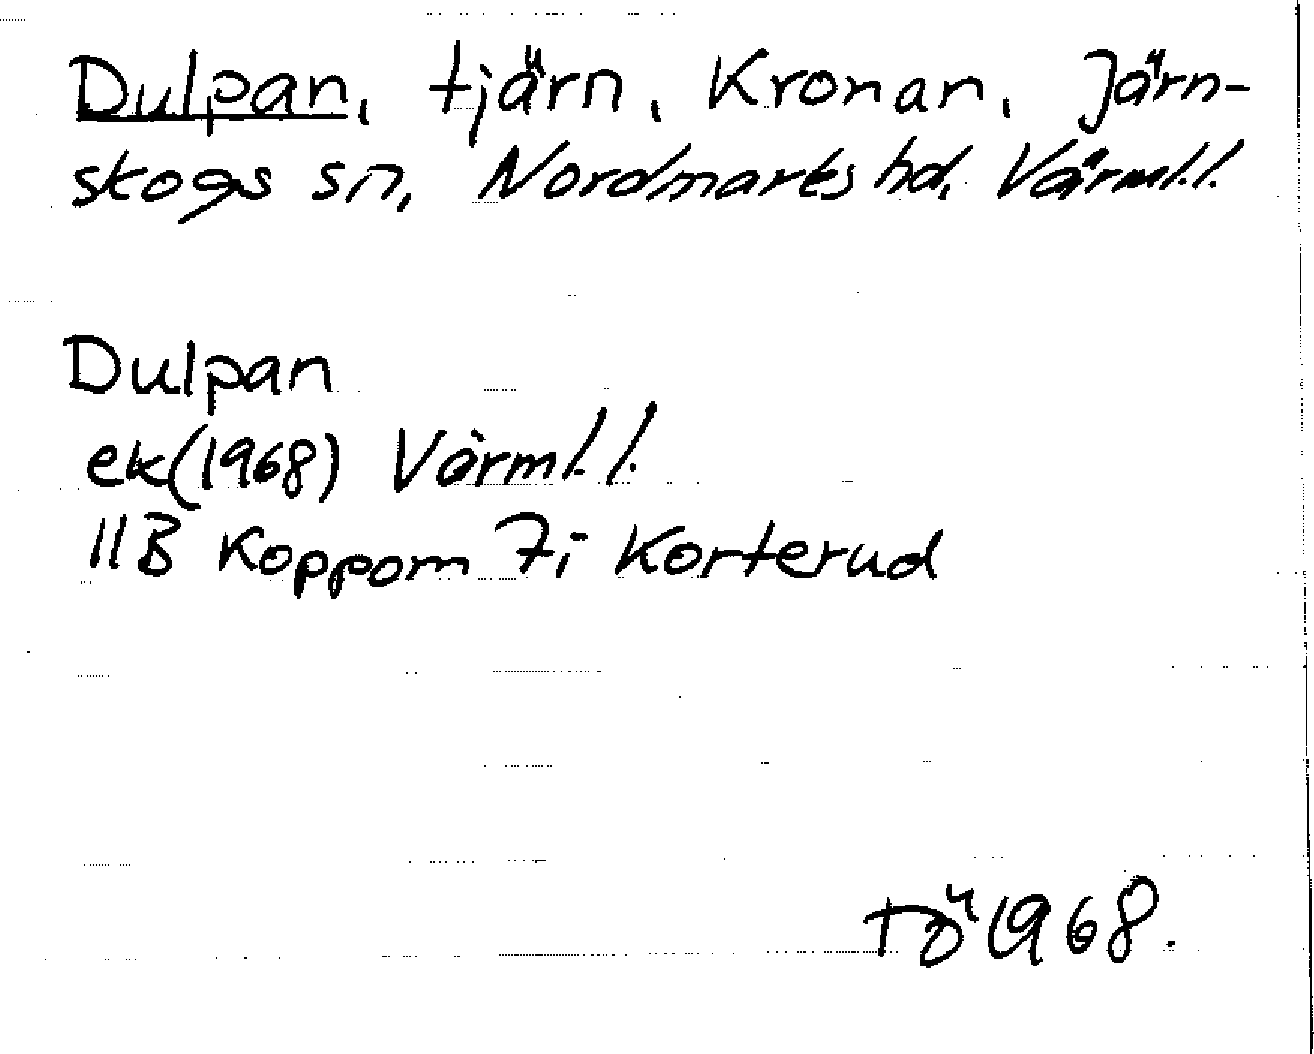 Dulpan, tjärn, Kronan, Järn-
skogs sn, Nordmarks hd, Värml.l.
Dulpan
ek(1968) Värml.l.
11B Koppom 7i Korterud
TÖ 1968.